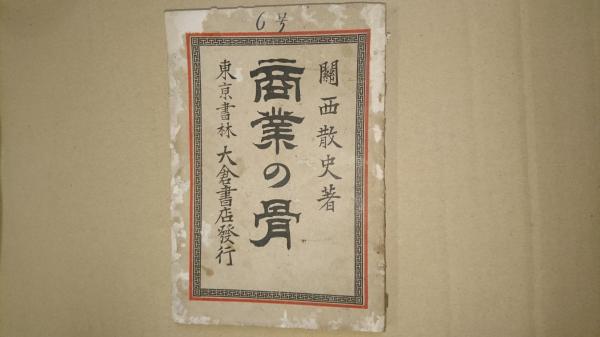 6号
關西散史著
商業の骨
東京書林 大倉書店發行